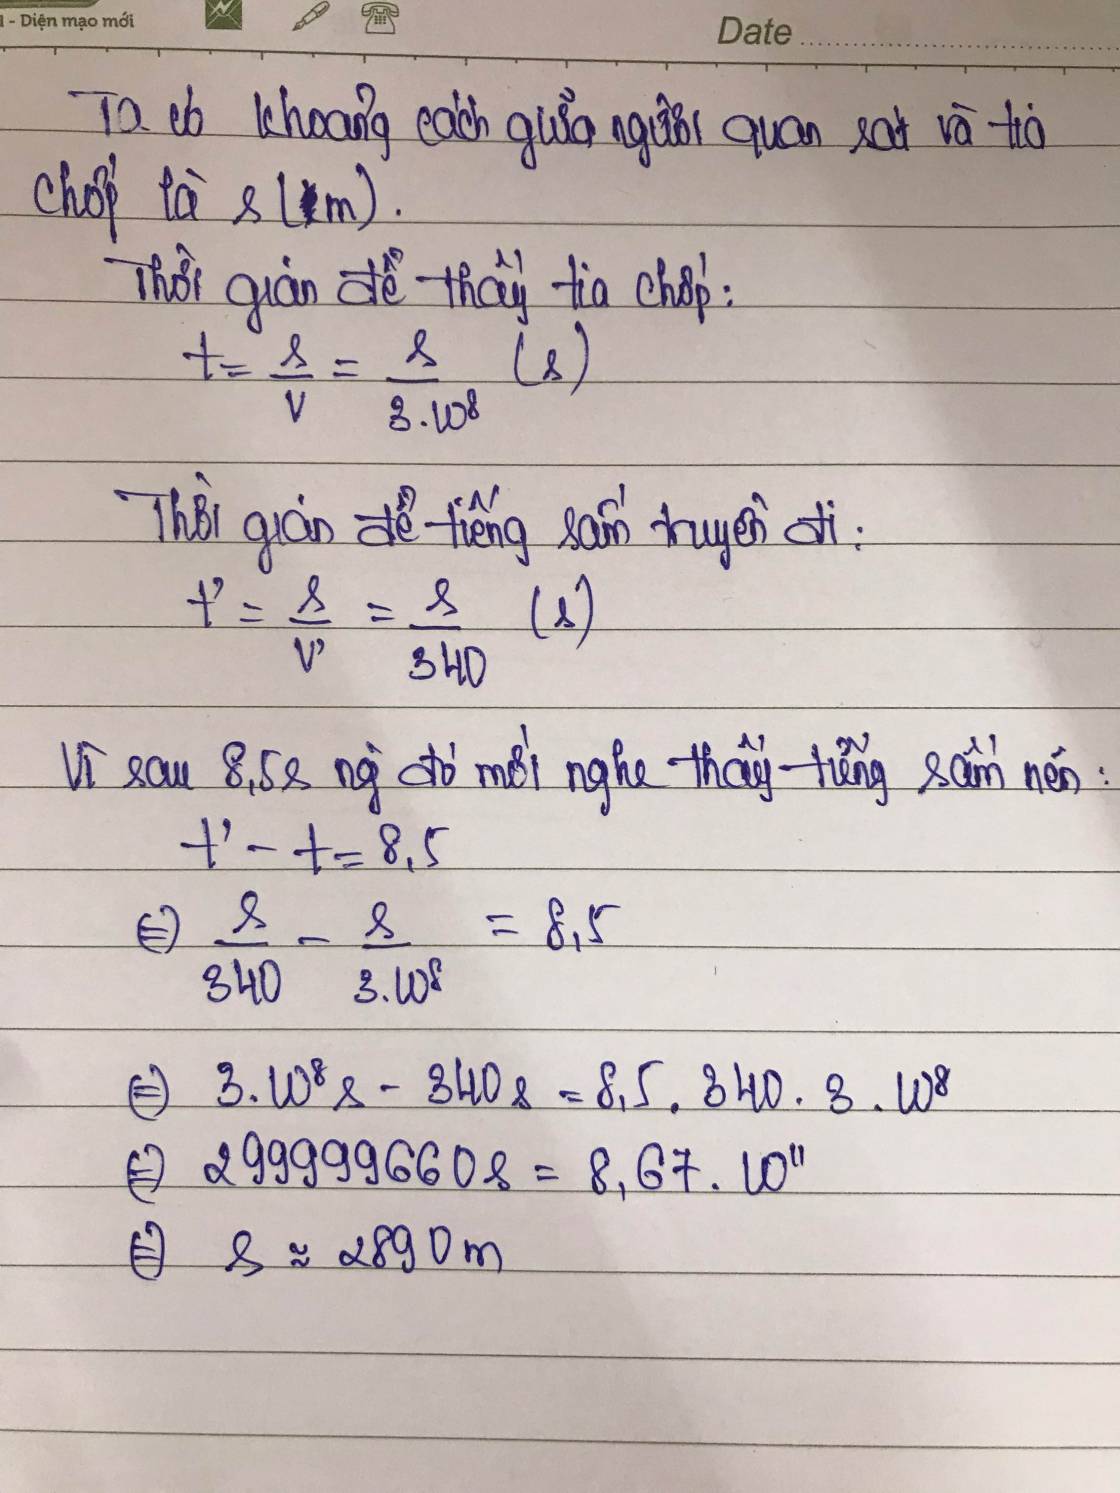 - Diện mạo mới
Date
Ta có khoảng cách giữa người quan sát và tia
chớp là s (m).
Thời gian để thấy tia chớp:
t = s/v = s/3.10⁸ (s)
Thời gian để tiếng sấm truyền đi:
t' = s/v' = s/340 (s)
Vì sau 8,5s ng đó mới nghe thấy tiếng sấm nên:
t' - t = 8,5
⇔ s/340 - s/3.10⁸ = 8,5
⇔ 3.10⁸s - 340s = 8,5 . 340 . 3 . 10⁸
⇔ 299999660s = 8,67 . 10¹¹
⇔ s ≈ 2890m